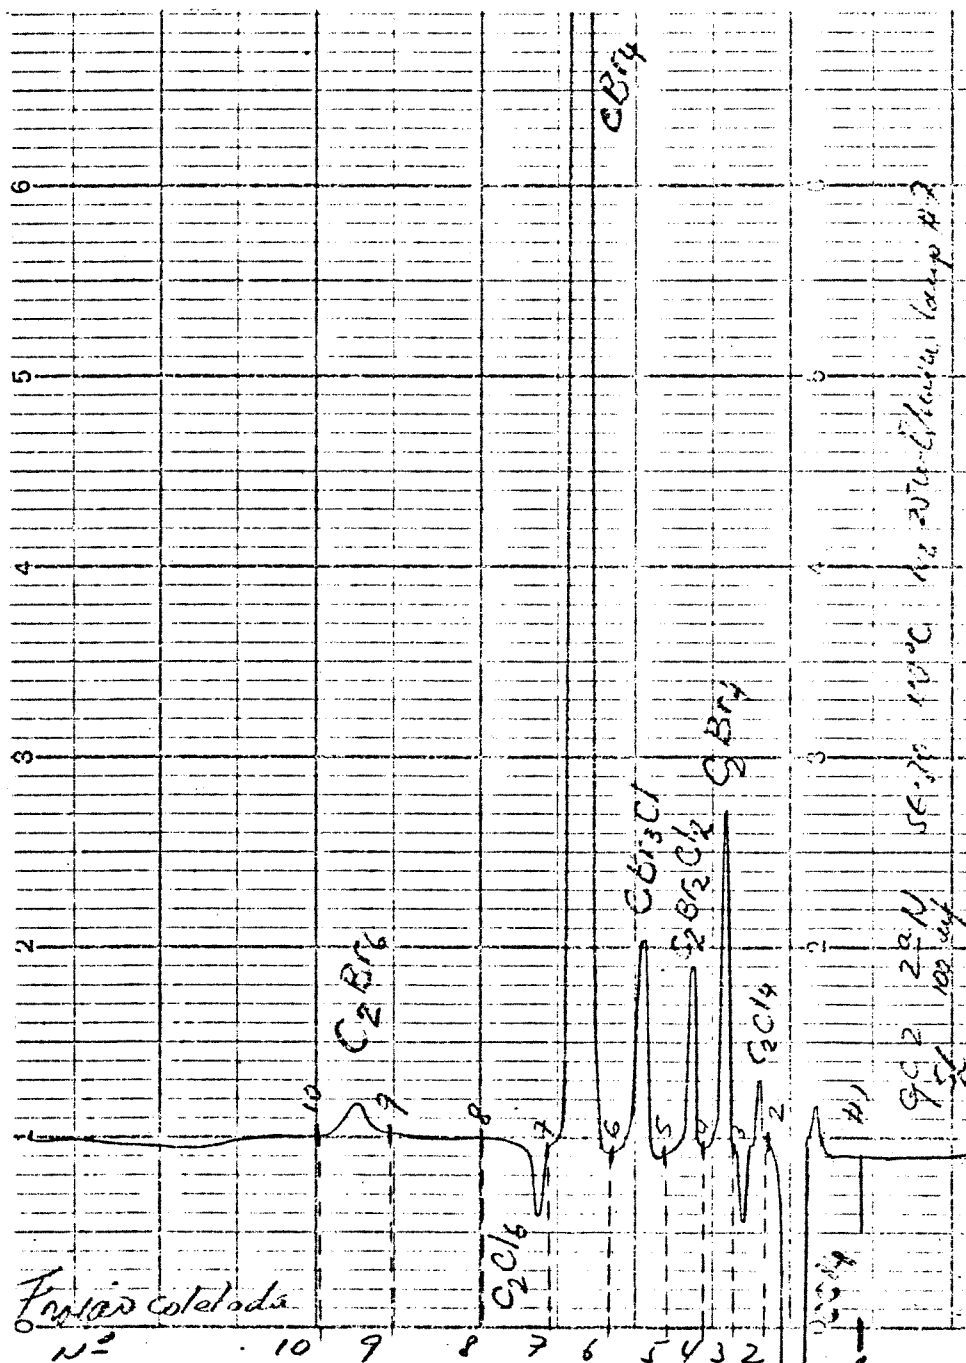 CBr4
6
5
4
3
2
1
0
6
3
2
C2Br6
CBr3Cl
C2Br2Cl2
C2Br4
C2Cl4
C2Cl6
10
9
8
7
6
5
4
3
2
#1
GC 2 2ª N SE-30 #2
100
Fração coletada
Nº 10 9 8 7 6 5 4 3 2